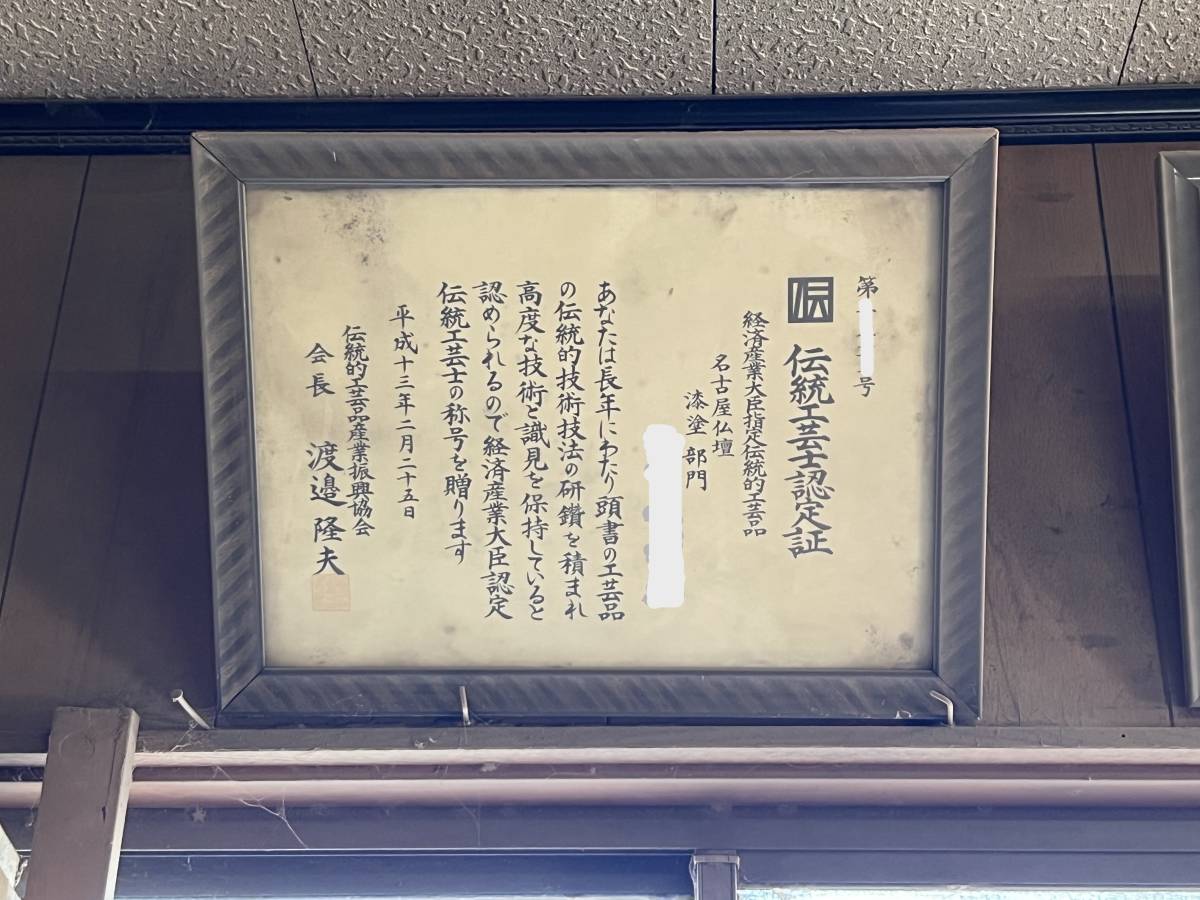 第 号
伝統工芸士認定証
経済産業大臣指定伝統的工芸品
名古屋仏壇
漆塗部門
あなたは長年にわたり頭書の工芸品
の伝統的技術技法の研鑽を積まれ
高度な技術と識見を保持していると
認められるので経済産業大臣認定
伝統工芸士の称号を贈ります
平成十三年二月二十五日
伝統的工芸品産業振興協会
会長 渡邉隆夫